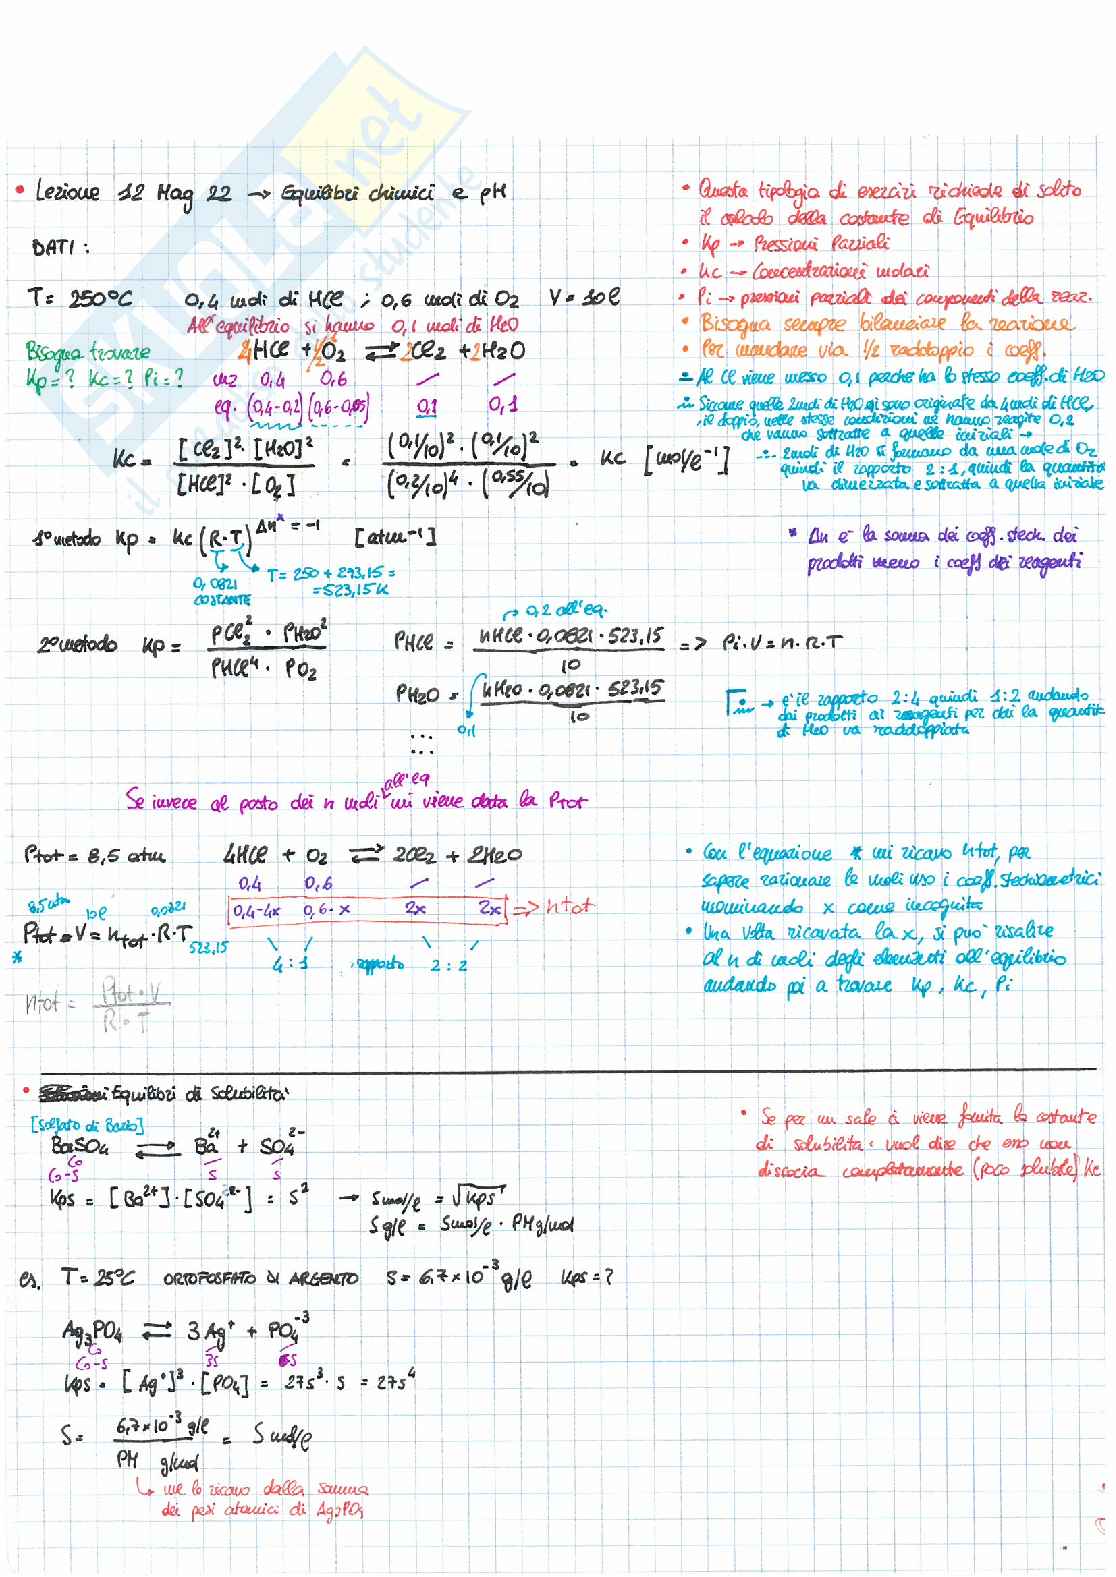 SKUOLA.net
il studente
• Lezione 12 Mag 22 → Equilibri chimici e pH
DATI :
T = 250°C 0,4 moli di HCl ; 0,6 moli di O2 V = 10 l
All'equilibrio si hanno 0,1 moli di H2O
Bisogna trovare
Kp = ? Kc = ? Pi = ?
4HCl + 1/2 O2 ⇌ 2Cl2 + 2H2O
0,4 0,6 / /
eq. (0,4-0,2) (0,6-0,05) 0,1 0,1
Kc = [Cl2]² · [H2O]² / [HCl]² · [O2] = (0,1/10)² · (0,1/10)² / (0,2/10)⁴ · (0,55/10) = Kc [mol/l⁻¹]
1° metodo Kp = Kc (R·T)^Δn* = -1 [atm⁻¹]
0,0821
COSTANTE
T = 250 + 273,15 =
= 523,15 K
2° metodo Kp = PCl2² · PH2O² / PHCl⁴ · PO2
→ 0,2 all'eq.
PHCl = nHCl · 0,0821 · 523,15 / 10 => Pi·V = n·R·T
PH2O = nH2O · 0,0821 · 523,15 / 10
0,1
...
...
Se invece al posto dei n moli all'eq mi viene data la Ptot
Ptot = 8,5 atm 4HCl + O2 ⇌ 2Cl2 + 2H2O
0,4 0,6 / /
0,4-4x 0,6-x 2x 2x => ntot
8,5 atm 10l 0,0821
Ptot · V = ntot · R · T 523,15
*
4 : 1 rapporto 2 : 2
ntot = Ptot · V / R · T
• Questa tipologia di esercizi richiede di solito
il calcolo della costante di Equilibrio
• Kp → Pressioni Parziali
• Kc → Concentrazioni molari
• Pi → pressioni parziali dei componenti della reaz.
• Bisogna sempre bilanciare la reazione
• Per mandare via 1/2 raddoppio i coeff.
= Al Cl viene messo 0,1 perché ha lo stesso coeff. di H2O
∴ Siccome quelle 2 moli di H2O si sono originate da 4 moli di HCl,
il doppio, nelle stesse condizioni ne hanno reagite 0,2
che vanno sottratte a quelle iniziali →
-:- 2 moli di H2O si formano da una mole di O2
quindi il rapporto 2:1, quindi la quantità
va dimezzata e sottratta a quella iniziale
* Δn è la somma dei coeff. stech. dei
prodotti meno i coeff dei reagenti
→ è il rapporto 2:4 quindi 1:2 andando
dai prodotti ai reagenti per cui la quantità
di H2O va raddoppiata
• Con l'equazione * mi ricavo ntot, per
sapere razionare le moli uso i coeff. stechiometrici
nominando x come incognita
• Una volta ricavata la x, si può risalire
al n di moli degli elementi all'equilibrio
andando poi a trovare Kp, Kc, Pi
• Equilibri di Solubilità
[Solfato di Bario]
BaSO4 ⇌ Ba²⁺ + SO4²⁻
Co / /
Co-S S S
Kps = [Ba²⁺]·[SO4²⁻] = S² → S mol/l = √Kps
S g/l = S mol/l · PM g/mol
• Se per un sale ci viene fornita la costante
di solubilità vuol dire che esso non
dissocia completamente (poco solubile) Kc
es. T = 25°C ORTOFOSFATO DI ARGENTO S = 6,7×10⁻³ g/l Kps = ?
Ag3PO4 ⇌ 3Ag⁺ + PO4⁻³
Co
Co-S 3S S
Kps = [Ag⁺]³ · [PO4] = 27s³ · s = 27s⁴
S = 6,7×10⁻³ g/l / PM g/mol = S mol/l
↳ me lo ricavo dalla somma
dei pesi atomici di Ag3PO4